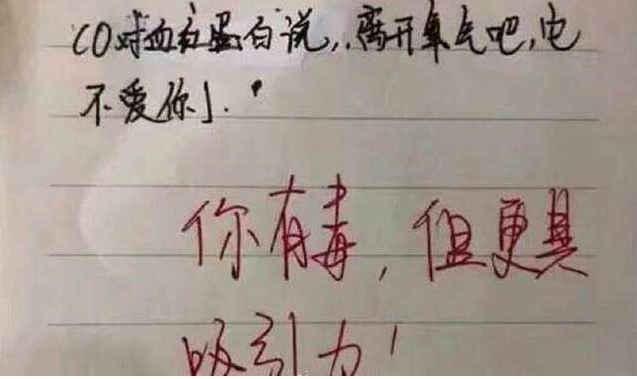 CO对血红蛋白说,,离开氧气吧,它
不爱你」.
你有毒,但更具
吸引力!